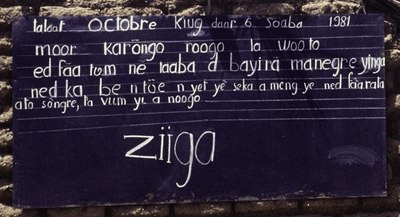 talaat OCtobre Kiug daar 6 Soaba 1981
moor Karõngo roogo la wooto
ed faa tum ne taaba a bayira manegre yinga
ned ka, be n tõe n yet yẽ seka a meng ye ned fãa rata
ata sõngre, la vum yɩ a noogo
ziiga